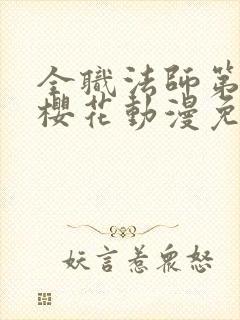 全職法師第
櫻花動漫免
妖言惹眾怒